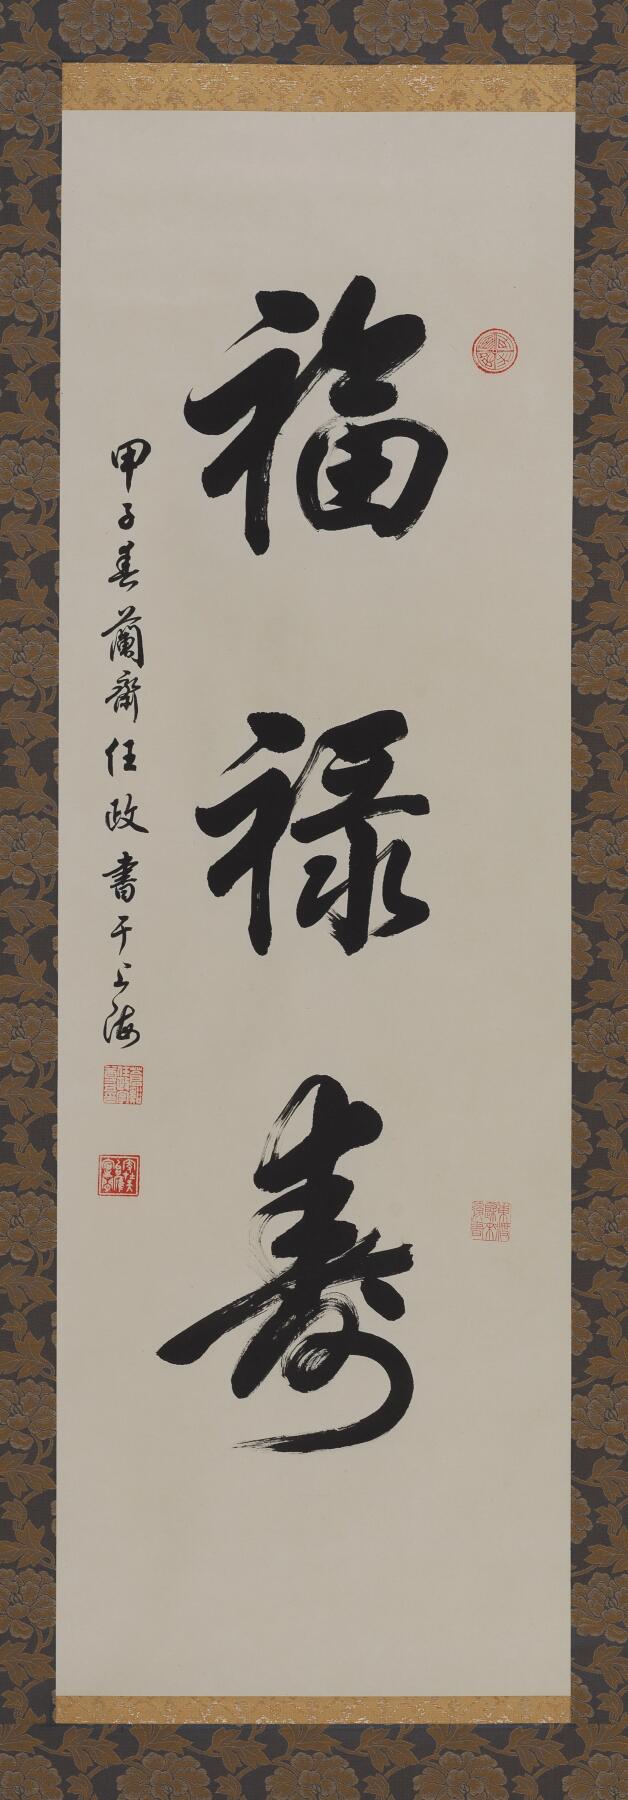 福禄寿
甲子春蘭齋任政書于上海